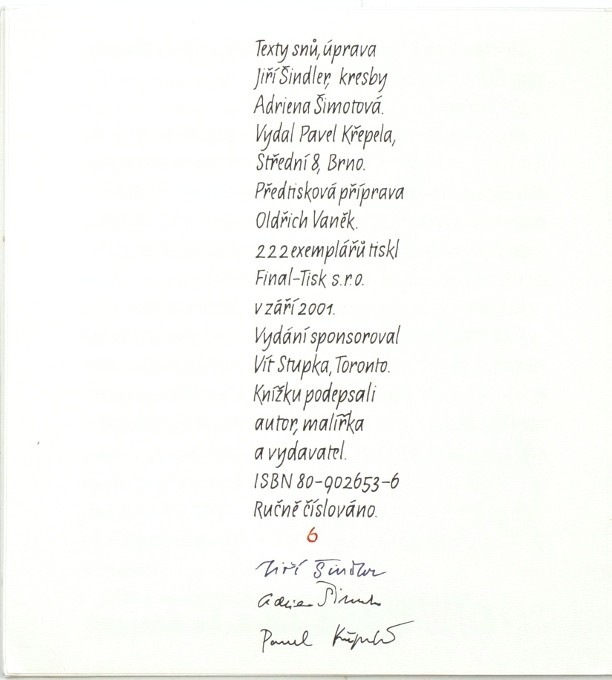 Texty snů, úprava
Jiří Šindler, kresby
Adriena Šimotová.
Vydal Pavel Křepela,
Střední 8, Brno.
Předtisková příprava
Oldřich Vaněk.
222 exemplářů tiskl
Final-Tisk s.r.o.
v září 2001.
Vydání sponsoroval
Vít Stupka, Toronto.
Knížku podepsali
autor, malířka
a vydavatel.
ISBN 80-902653-6
Ručně číslováno.
6
Jiří Šindler
Pavel